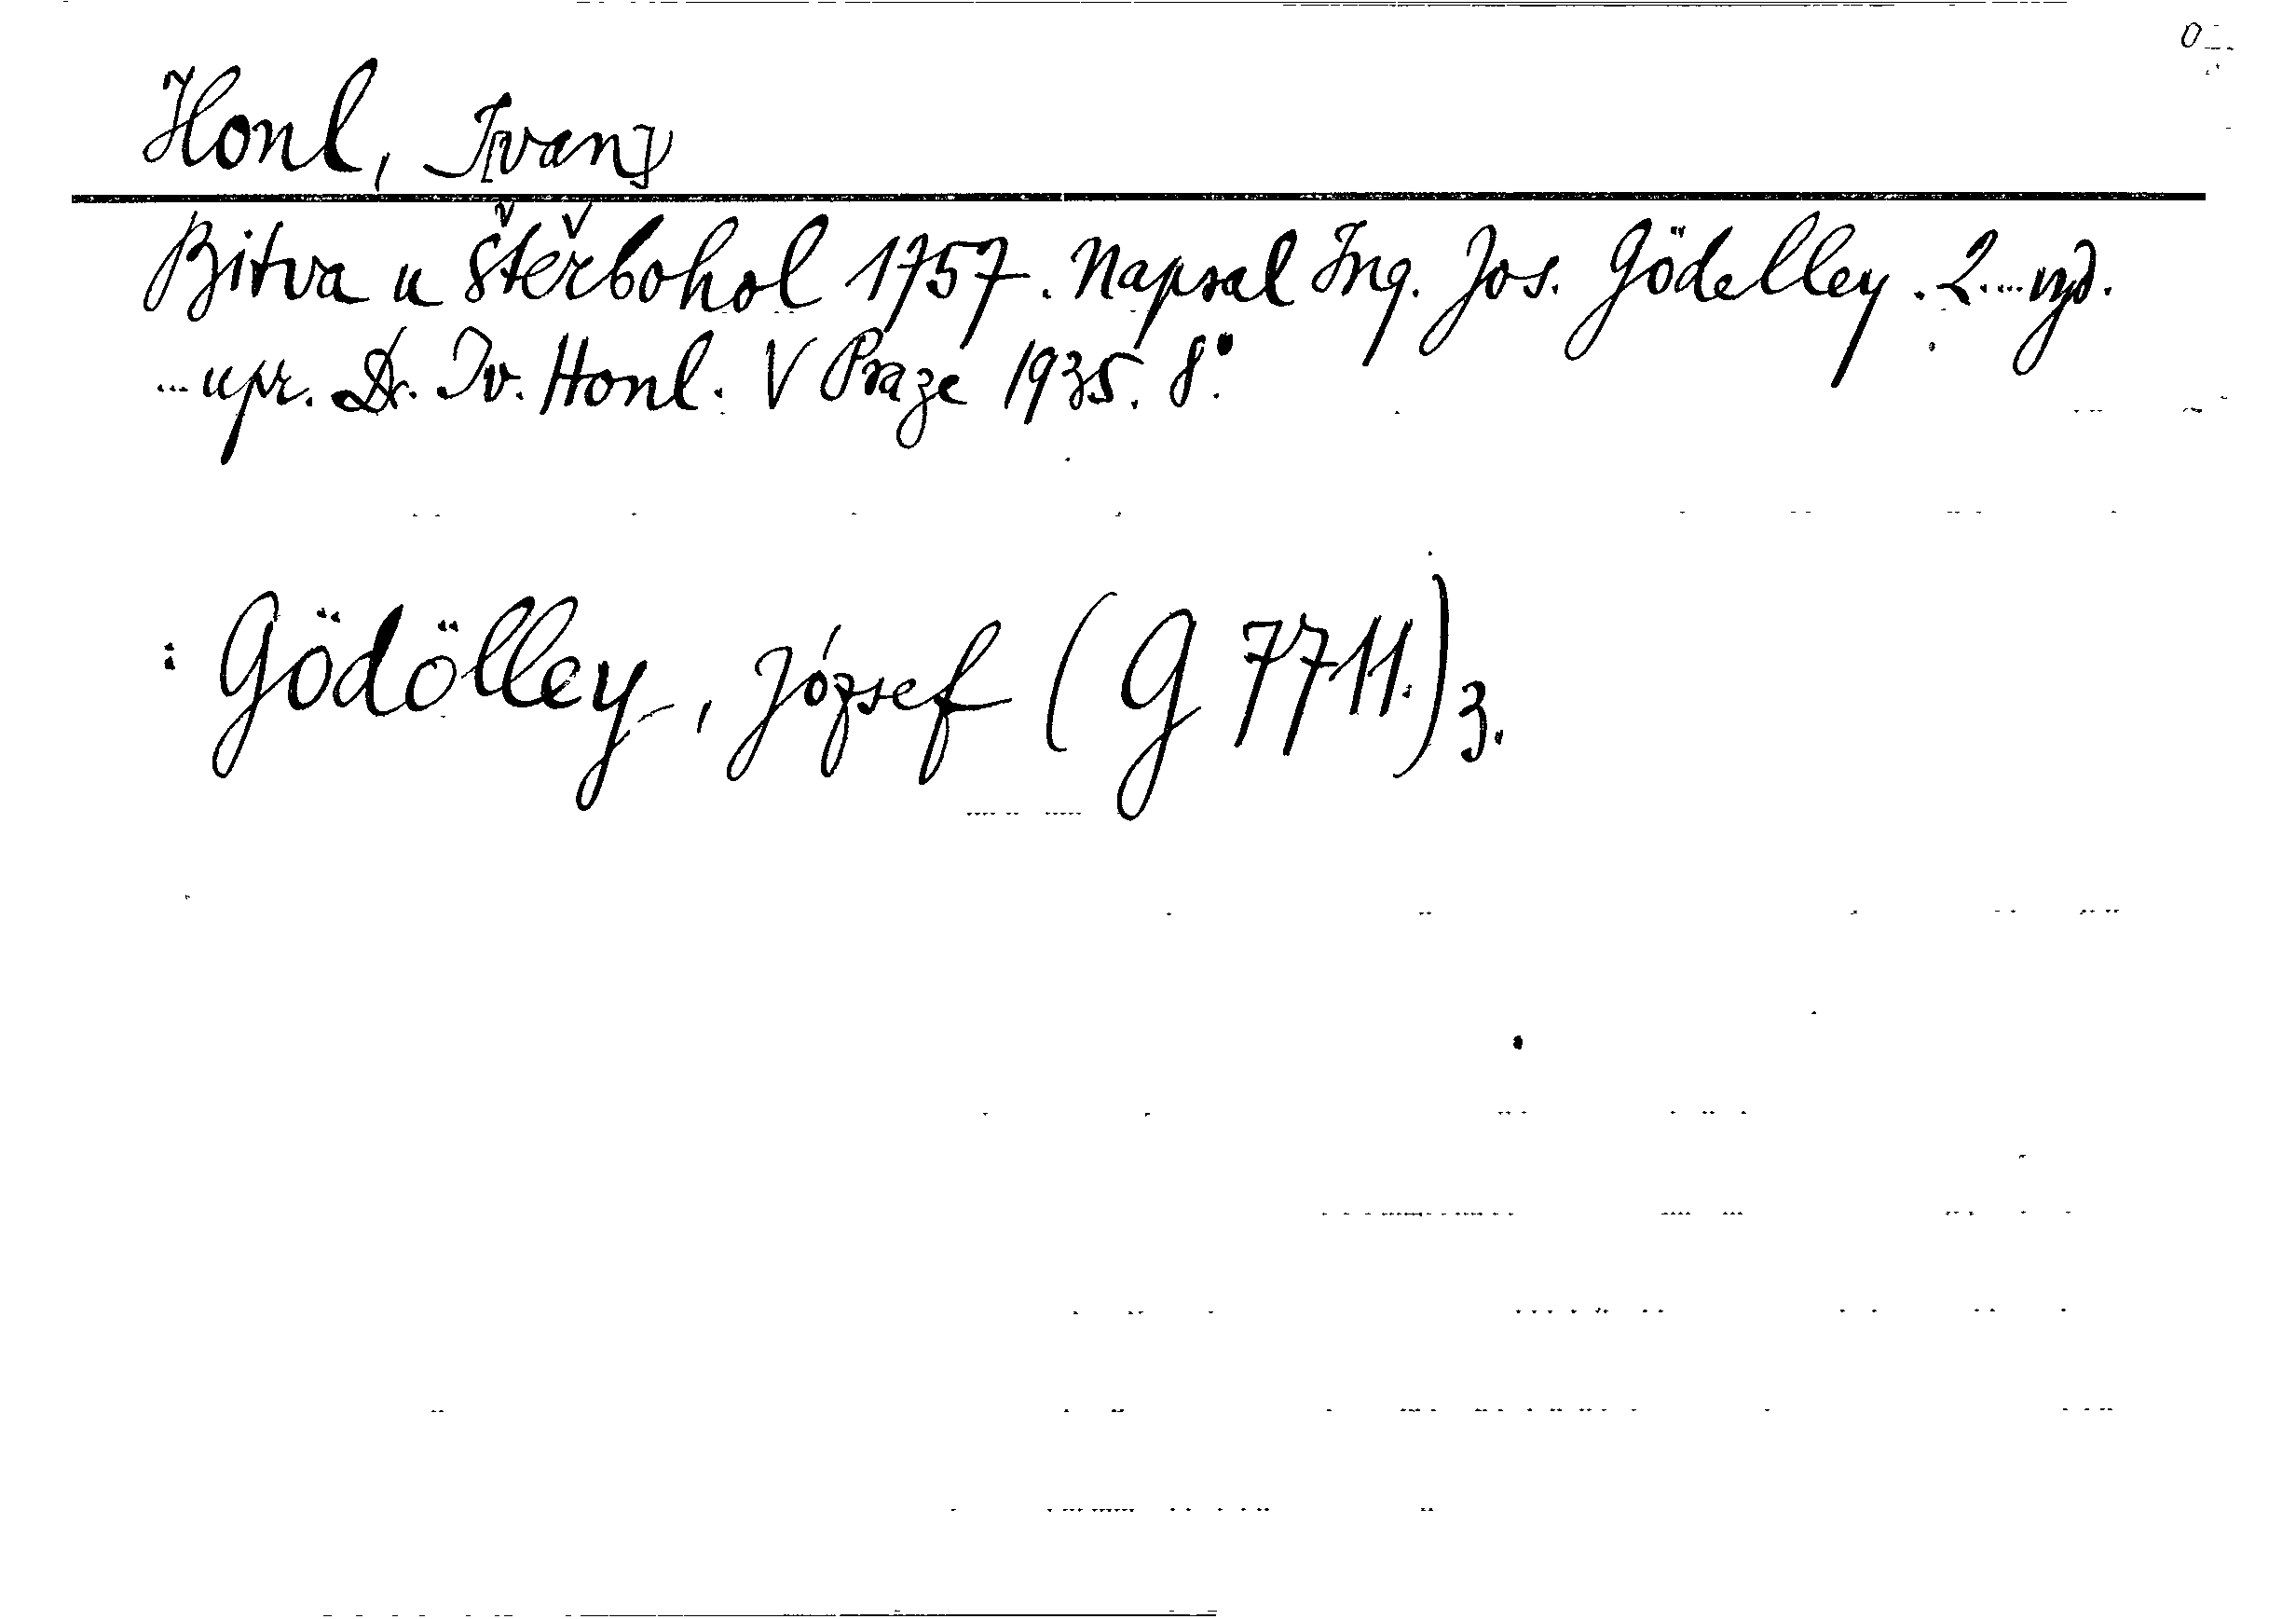 Honl, I[van]
Bitva u Štěrbohol 1757. Napsal Ing. Jos. Gödelley. 2. ... vyd.
... upr. Dr. Iv. Honl. V Praze 1935. 8°.
: Gödölley, József (G 7711.) 3.